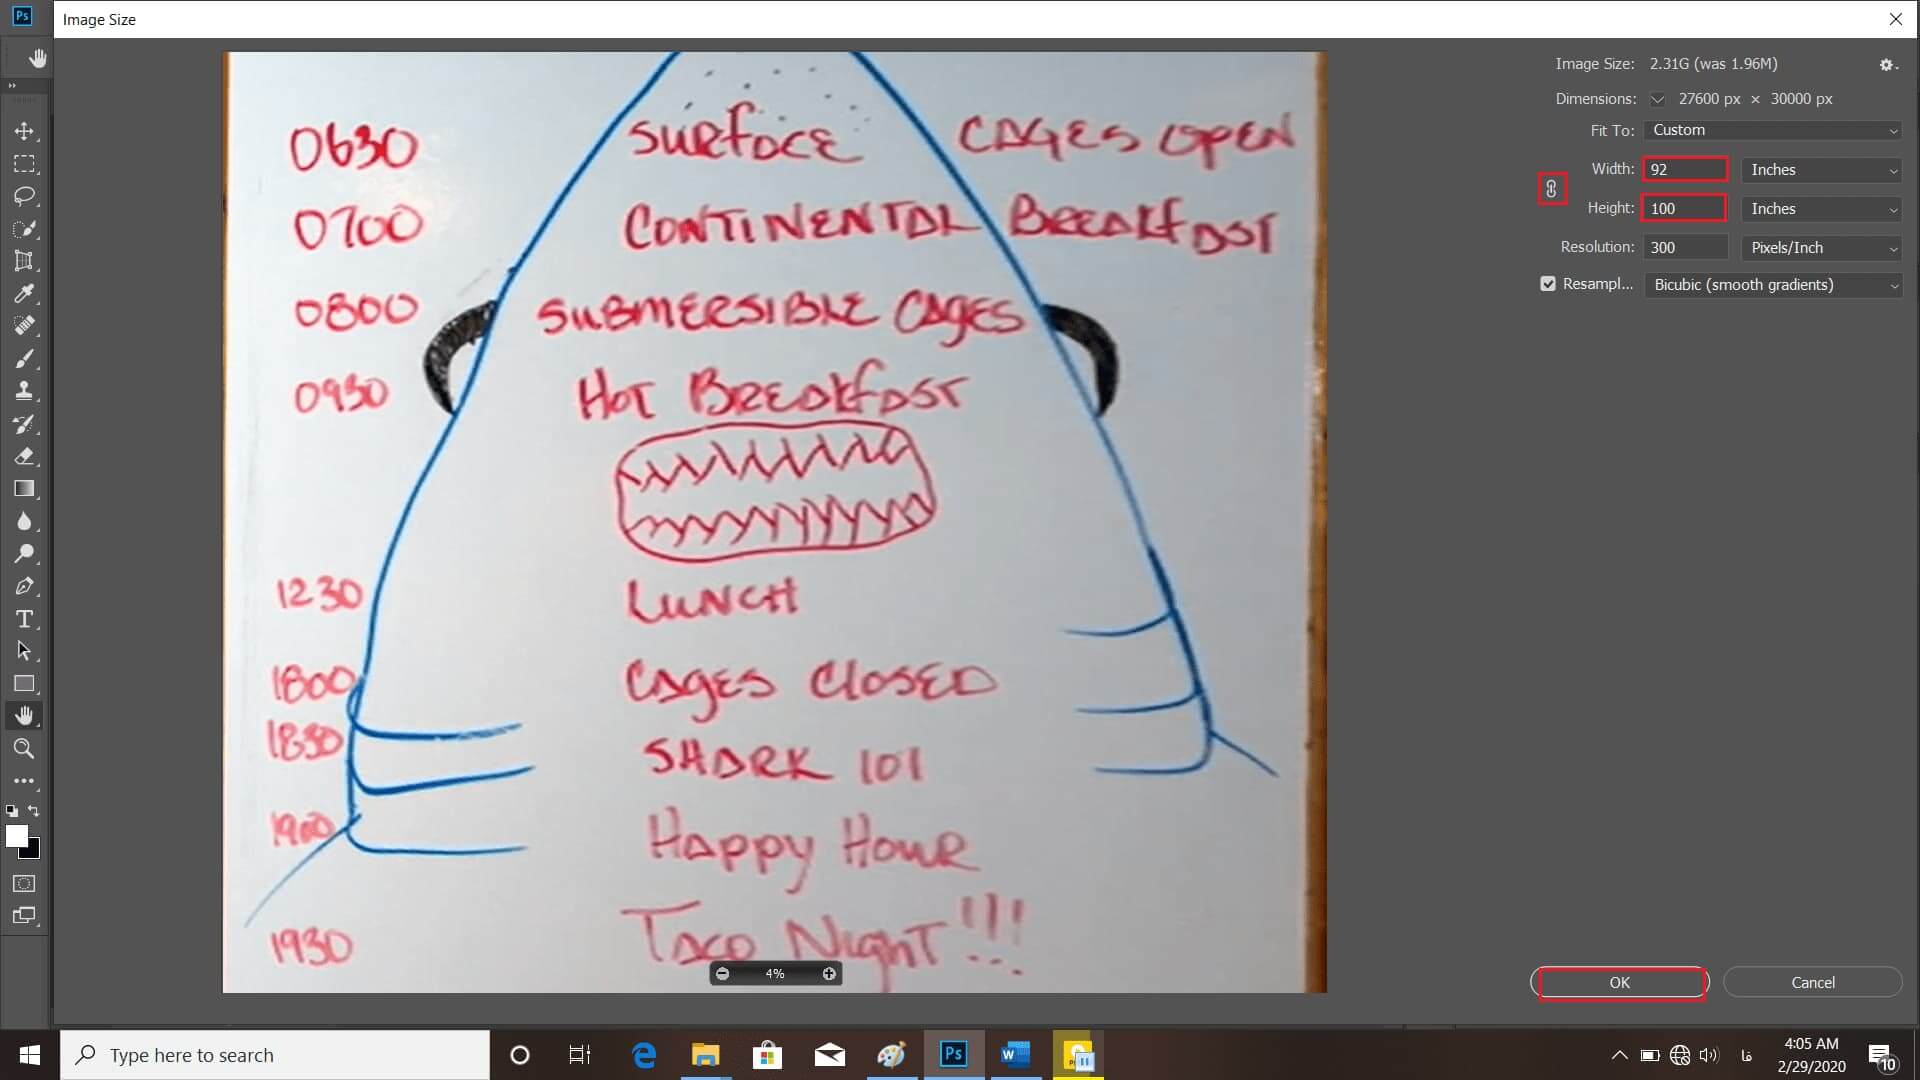 Ps
Image Size
Image Size: 2.31G (was 1.96M)
Dimensions: 27600 px × 30000 px
Fit To: Custom
Width: 92 Inches
Height: 100 Inches
Resolution: 300 Pixels/Inch
Resampl... Bicubic (smooth gradients)
0630 SURFACE CAGES OPEN
0700 CONTINENTAL BREAKFAST
0800 SUBMERSIBLE CAGES
0930 HOT BREAKFAST
1230 LUNCH
1800 CAGES CLOSED
1830 SHARK 101
1900 HAPPY HOUR
1930 TACO NIGHT!!!
4%
OK Cancel
Type here to search
Ps
W
فا
4:05 AM
2/29/2020
10